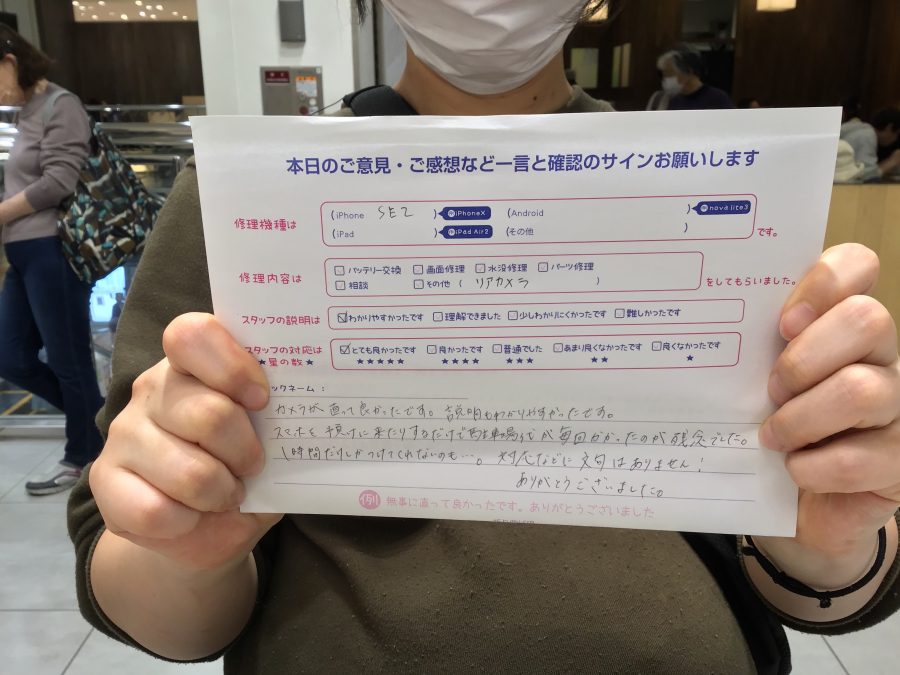 本日のご意見・ご感想など一言と確認のサインお願いします
修理機種は (iPhone SE2 ) 例iPhoneX (Android ) 例nova lite3
(iPad ) 例iPad Air2 (その他 ) です。
修理内容は □バッテリー交換 □画面修理 □水没修理 □パーツ修理
□相談 □その他 ( リアカメラ ) をしてもらいました。
スタッフの説明は ☑わかりやすかったです □理解できました □少しわかりにくかったです □難しかったです
スタッフの対応は ☑とても良かったです □良かったです □普通でした □あまり良くなかったです □良くなかったです
★星の数★ ★★★★★ ★★★★ ★★★ ★★ ★
ックネーム：
カメラが直って良かったです。説明もわかりやすかったです。
スマホを預けに来たりするだけで駐車場代が毎回かかったのが残念でした。
1時間だけしかつけてくれないのも…。対応などに文句はありません！
ありがとうございました。
例 無事に直って良かったです。ありがとうございました